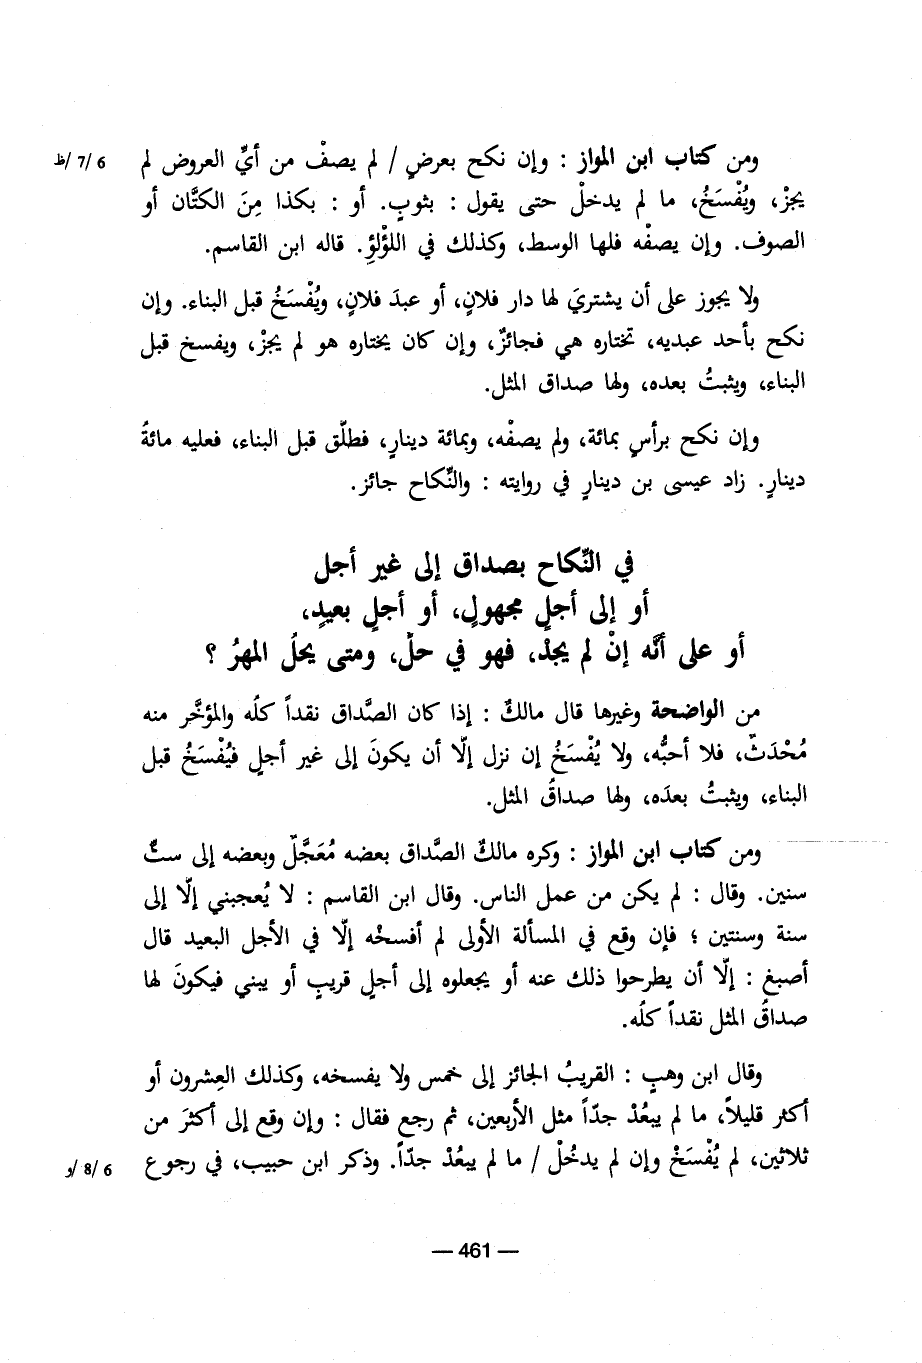 ومن كتاب ابن المواز : وإن نكح بعرضٍ / لم يصفْ من أيِّ العروض لم 6 /7 /ظ
يجزْ، ويُفْسَخُ، ما لم يدخلْ حتى يقول : بثوبٍ. أو : بكذا مِنَ الكتَّان أو
الصوف. وإن يصفْه فلها الوسط، وكذلك في اللؤلؤِ. قاله ابن القاسم.
ولا يجوز على أن يشتريَ لها دار فلانٍ، أو عبدَ فلانٍ، ويُفْسَخُ قبل البناء. وإن
نكح بأحد عبديه، تختاره هي فجائزٌ، وإن كان يختاره هو لم يجزْ، ويفسخ قبل
البناء، ويثبتُ بعده، ولها صداق المثل.
وإن نكح برأسٍ بمائة، ولم يصفْه، وبمائة دينارٍ، فطلّق قبل البناء، فعليه مائةُ
دينارٍ. زاد عيسى بن دينارٍ في روايته : والنِّكاح جائز.
في النِّكاح بصداق إلى غير أجل
أو إلى أجلٍ مجهولٍ، أو أجلٍ بعيدٍ،
أو على أنَّه إنْ لم يجدْ، فهو في حلّ، ومتى يحلُ المهرُ ؟
من الواضحة وغيرها قال مالكٌ : إذا كان الصَّداق نقداً كلُه والمؤخَّر منه
مُحْدَثٌ، فلا أحبُّه، ولا يُفْسَخُ إن نزل إلّا أن يكونَ إلى غير أجلٍ فيُفْسَخُ قبل
البناء، ويثبتُ بعدَه، ولها صداقُ المثل.
ومن كتاب ابن المواز : وكره مالكٌ الصَّداق بعضه مُعَجَّلٌ وبعضه إلى ستِّ
سنين. وقال : لم يكن من عمل الناس. وقال ابن القاسم : لا يُعجبني إلّا إلى
سنة وسنتين ؛ فإن وقع في المسألة الأولى لم أفسخْه إلّا في الأجل البعيد قال
أصبغ : إلّا أن يطرحوا ذلك عنه أو يجعلوه إلى أجلٍ قريبٍ أو يبني فيكونَ لها
صداقُ المثل نقداً كلُه.
وقال ابن وهبٍ : القريبُ الجائز إلى خمس ولا يفسخه، وكذلك العِشرون أو
أكثر قليلاً، ما لم يبعُدْ جدّاً مثل الأربعين، ثم رجع فقال : وإن وقع إلى أكثرَ من
ثلاثين، لم يُفْسَخْ وإن لم يدخُلْ / ما لم يبعُدْ جدّاً. وذكر ابن حبيب، في رجوع 6 /8 /و
— 461 —